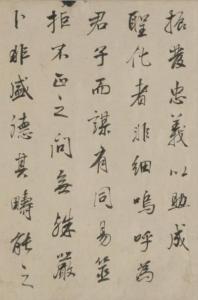 振發忠義以助成
聖化者非細嗚呼爲
君子而謀有同易筮
拒不正之問無殊嚴
卜非盛德其疇能之